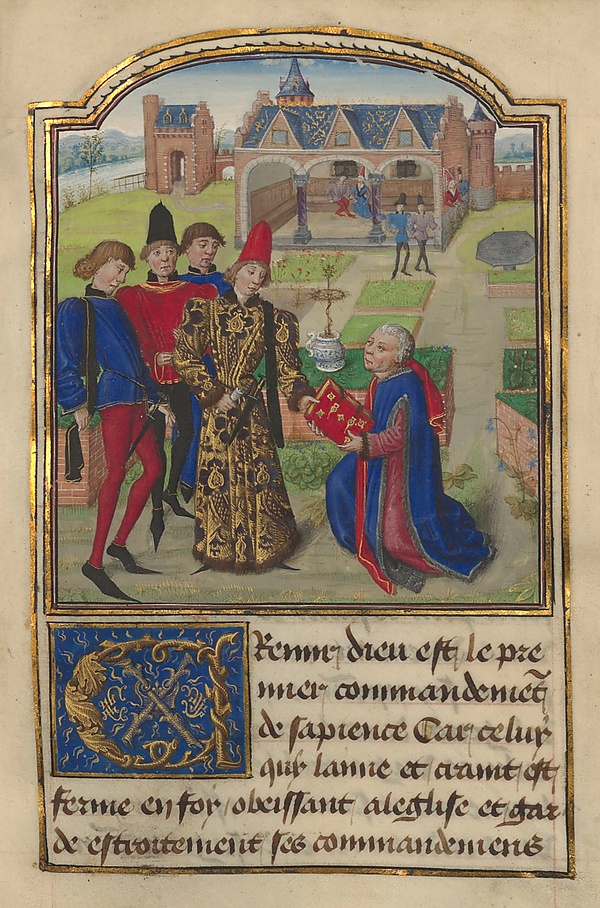 CRemir dieu est le pre
mier commandemēt
de sapience Car celuy
quy laime et craint est
ferme en foy obeissant aleglise et gar
de estroitement ses commandemens